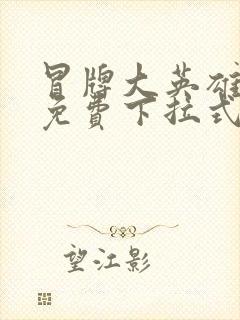 冒牌大英雄
免費下拉式
望江影